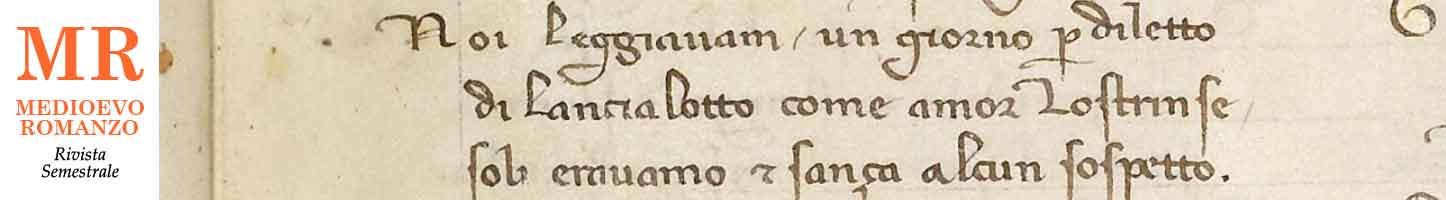 MR
MEDIOEVO
ROMANZO
Rivista
Semestrale
Noi leggiauam / un giorno p diletto
di lancialotto come amor lo strinse /
soli erauamo & sança alcun sospetto.